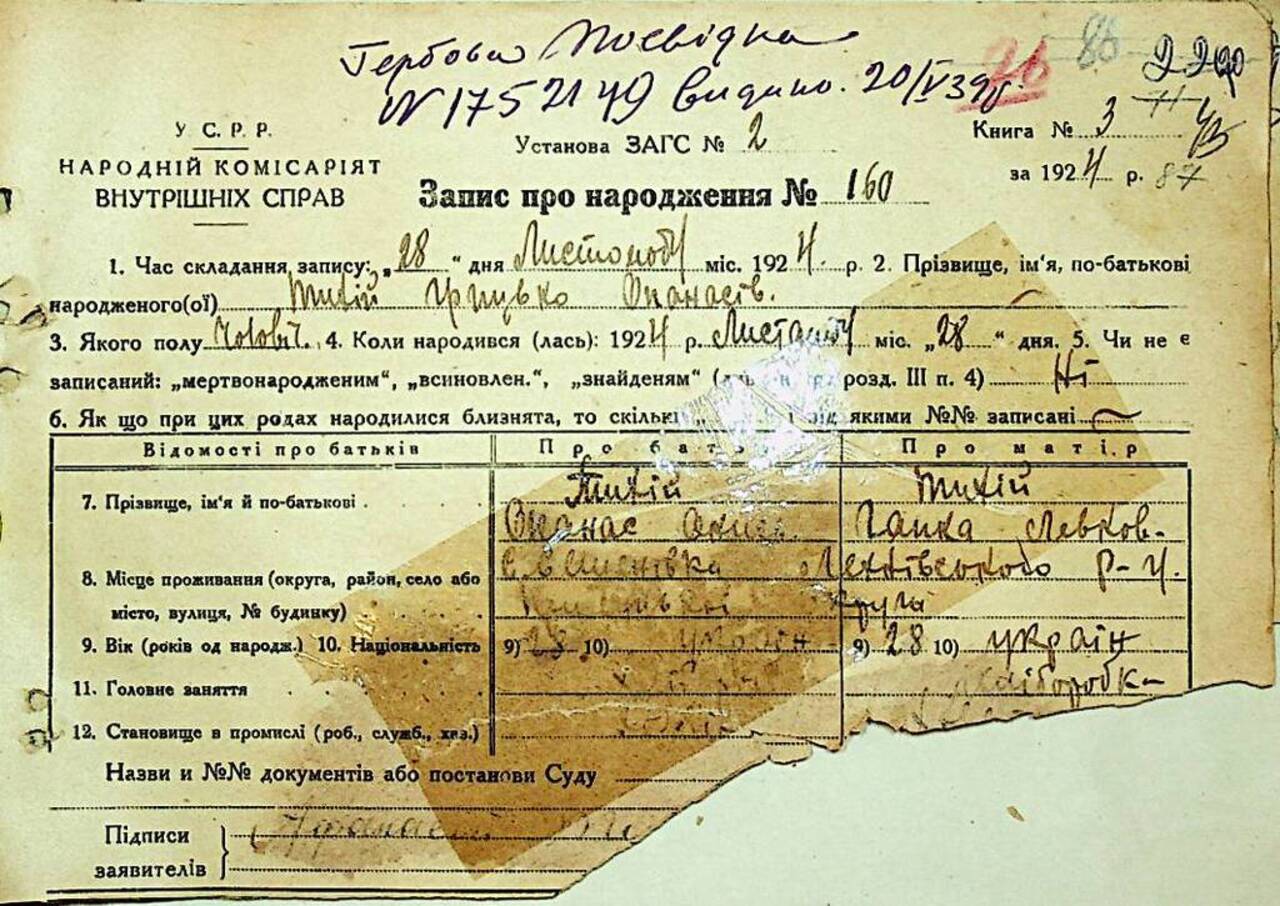 Гербова Посвідка
N 1752149 видано. 20/V 39 р.
26 86
У С. Р. Р.
НАРОДНІЙ КОМІСАРІЯТ
ВНУТРІШНІХ СПРАВ
Установа ЗАГС № 2
Книга № 3
за 1924 р. 87
Запис про народження № 160
1. Час складання запису: „28“ дня Листопаду міс. 1924 р. 2. Прізвище, ім'я, по-батькові
народженого(ої) Тихій Грицько Опанасів.
3. Якого полу Чолові. 4. Коли народився (лась): 1924 р. Листопаду міс. „28“ дня. 5. Чи не є
записаний: „мертвонародженим“, „всиновлен.“, „знайденям“ ( розд. III п. 4) Ні
6. Як що при цих родах народилися близнята, то скільки якими №№ записані —
Відомості про батьків Про бать Про матір
7. Прізвище, ім'я й по-батькові Тихій Тихій
Опанас Ганка Левков-
8. Місце проживання (округа, район, село або Р-у.
місто, вулиця, № будинку) округи
9. Вік (років од народж.) 10. Національність 9) 28 10) україн 9) 28 10) україн
11. Головне заняття хліборобка
12. Становище в промислі (роб., служб., хаз.)
Назви и №№ документів або постанови Суду
Підписи
заявителів